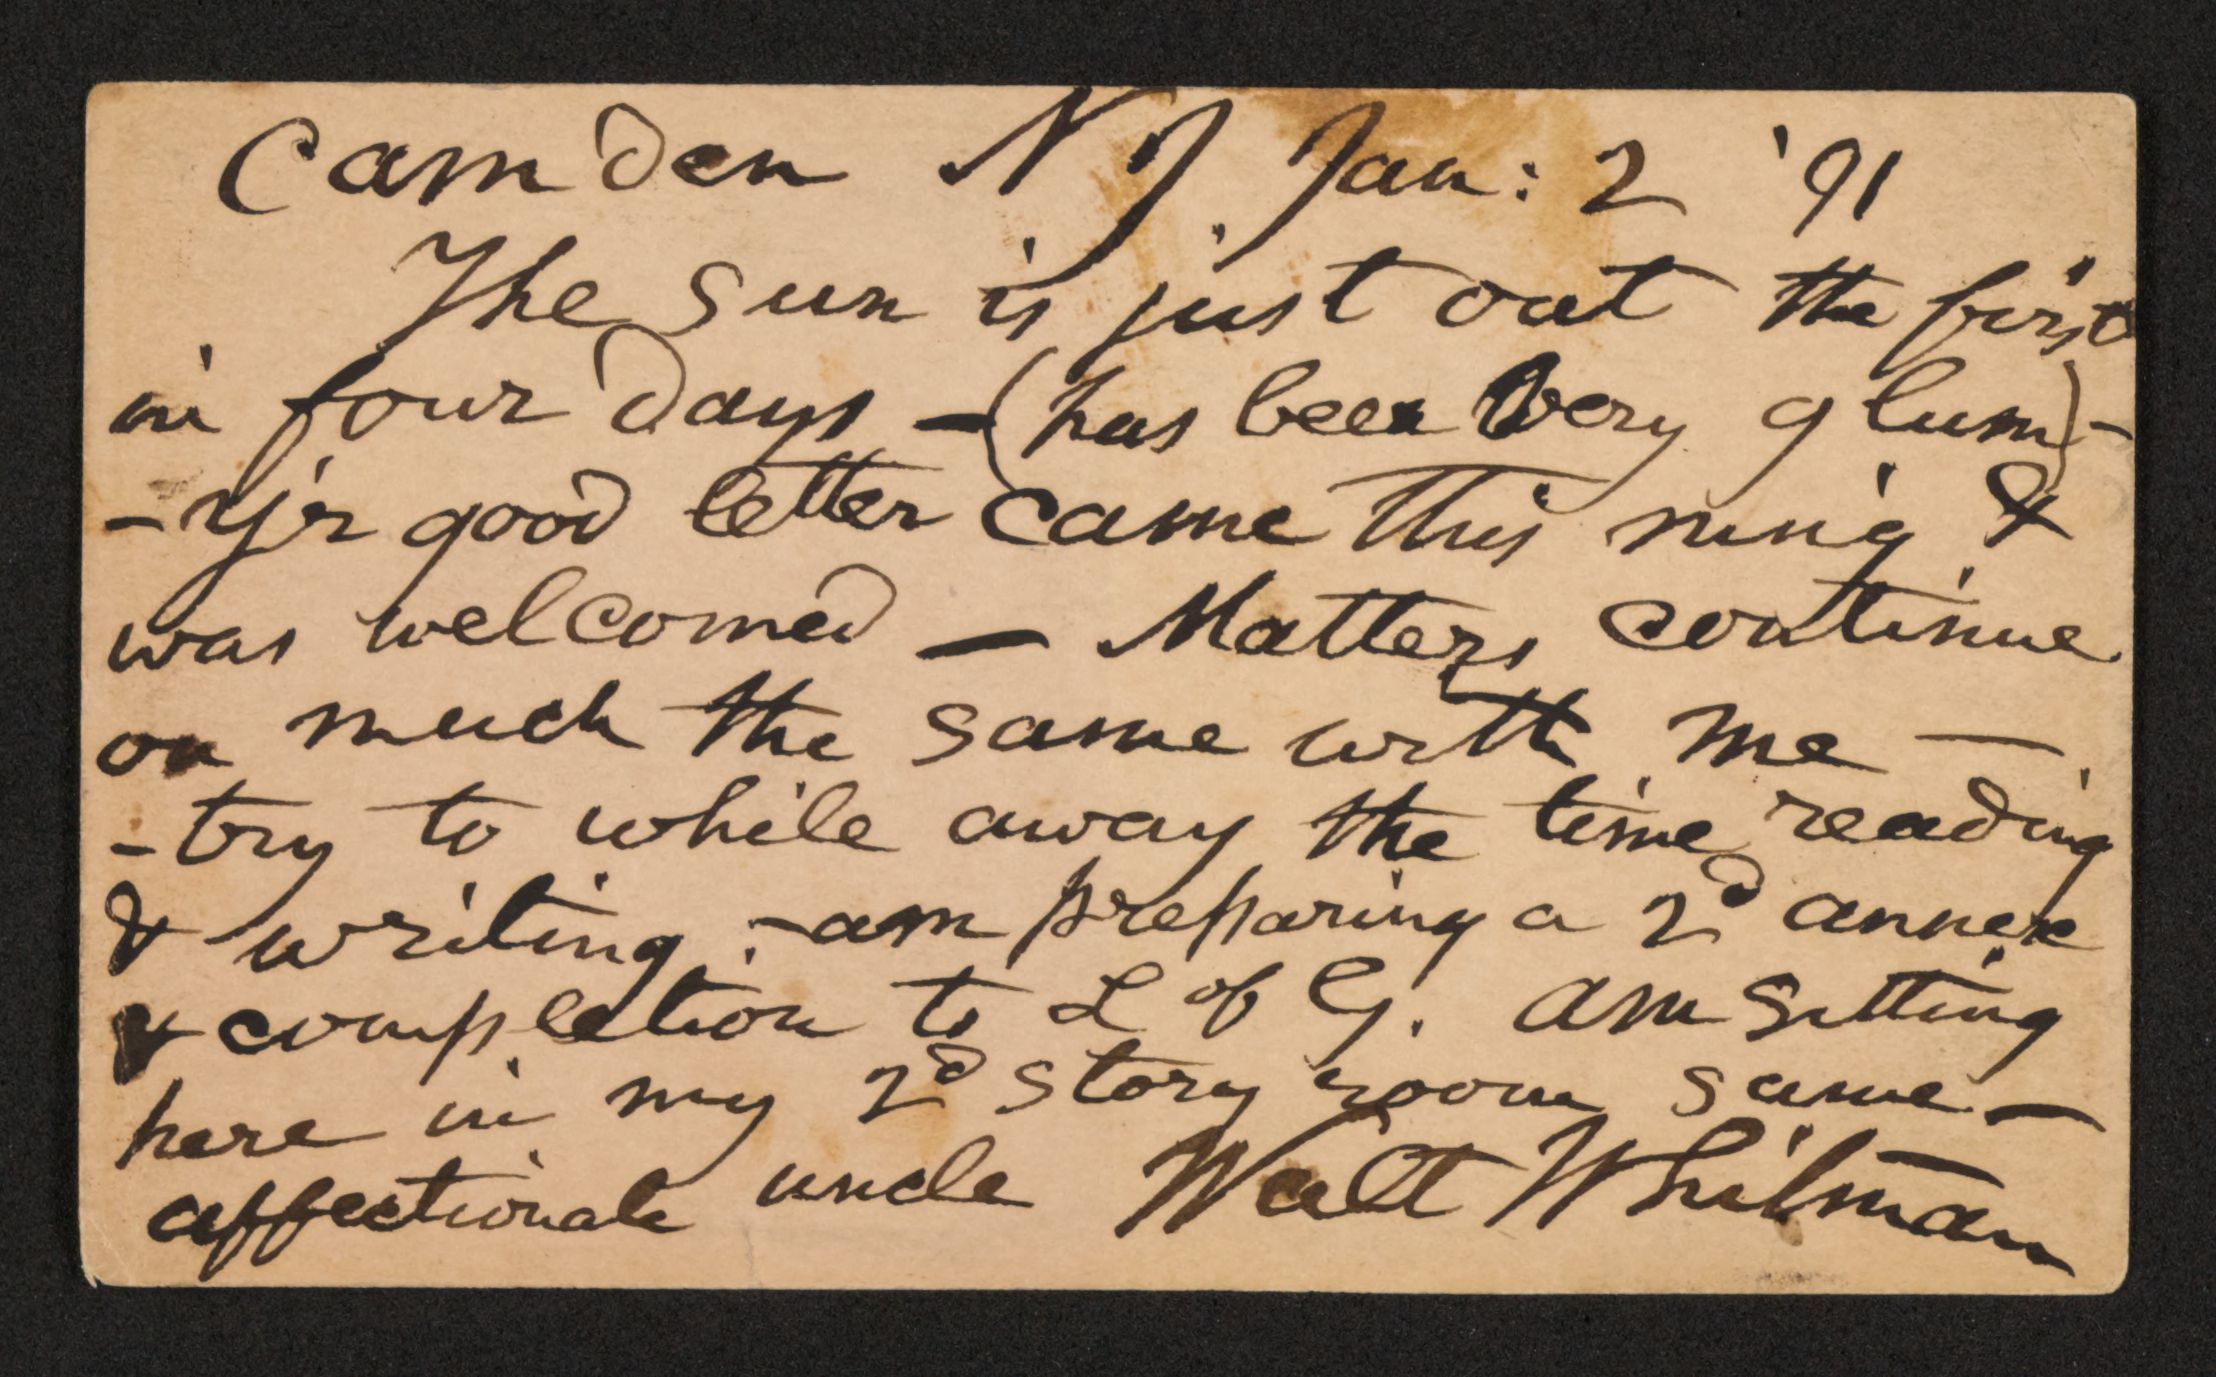 Camden N J Jan: 2 '91
The sun is just out the first
in four days - (has been very glum) -
- y'r good letter came this m'ng &
was welcomed - Matters continue
on much the same with me -
- try to while away the time reading
& writing - am preparing a 2d annex
& completion to L of G. am sitting
here in my 2d story room same -
affectionate uncle Walt Whitman